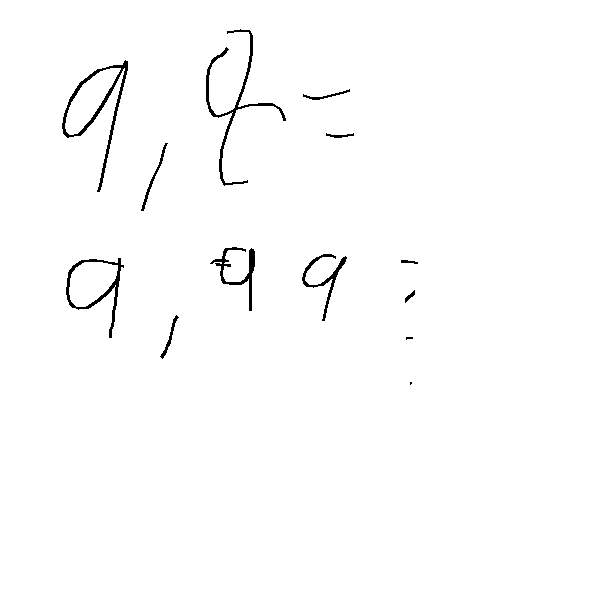 9,8=
9,99